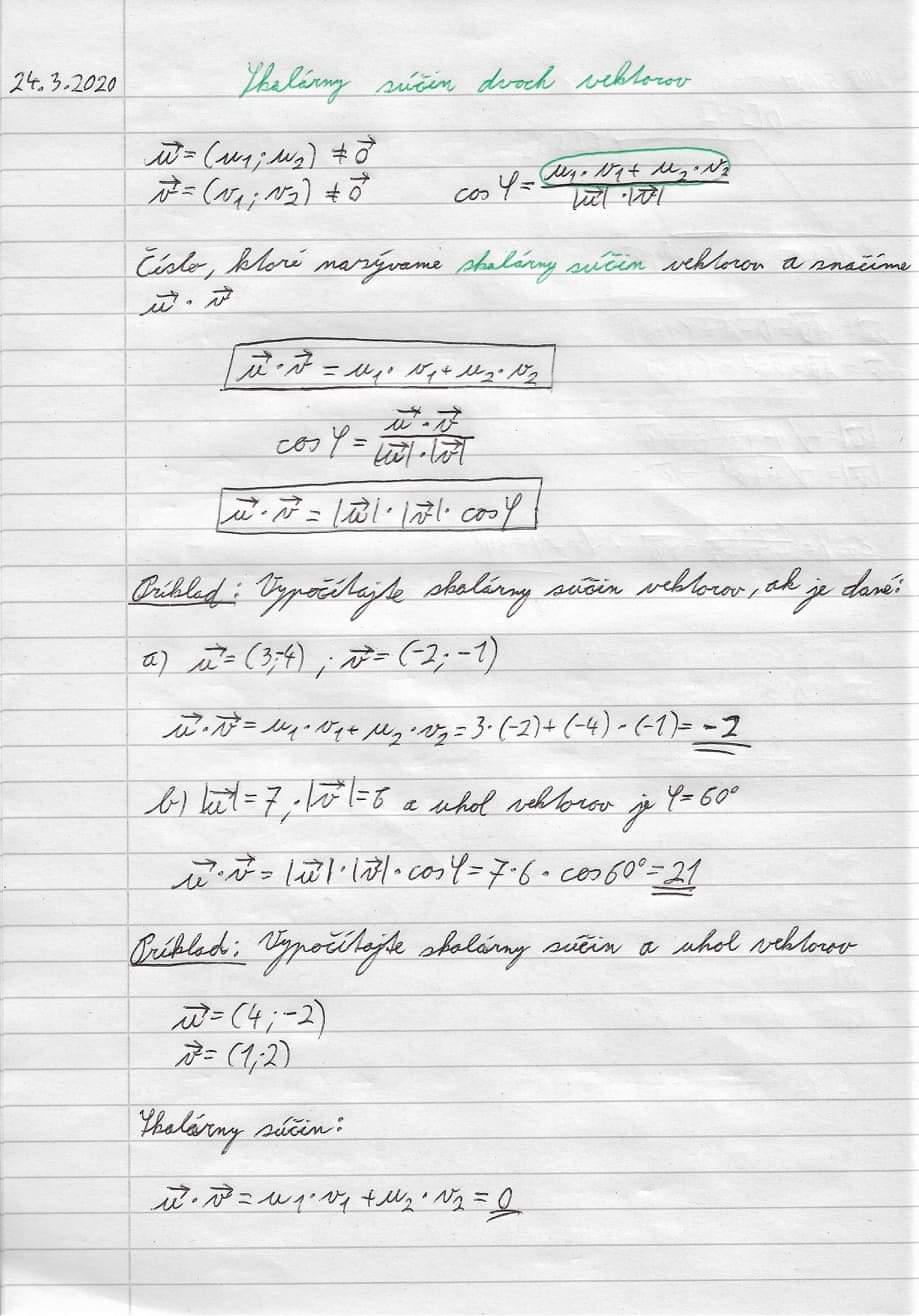 24.3.2020
Skalárny súčin dvoch vektorov
u⃗ = (u₁; u₂) ≠ 0⃗
v⃗ = (v₁; v₂) ≠ 0⃗
cos φ = (u₁·v₁ + u₂·v₂) / (|u⃗|·|v⃗|)
Číslo, ktoré nazývame skalárny súčin vektorov a značíme
u⃗ · v⃗
u⃗ · v⃗ = u₁ · v₁ + u₂ · v₂
cos φ = (u⃗ · v⃗) / (|u⃗|·|v⃗|)
u⃗ · v⃗ = |u⃗| · |v⃗| · cos φ
Príklad: Vypočítajte skalárny súčin vektorov, ak je dané:
a) u⃗ = (3;-4) ; v⃗ = (-2; -1)
u⃗ · v⃗ = u₁ · v₁ + u₂ · v₂ = 3·(-2) + (-4) · (-1) = -2
b) |u⃗| = 7 , |v⃗| = 6 a uhol vektorov je φ = 60°
u⃗ · v⃗ = |u⃗| · |v⃗| · cos φ = 7·6 · cos 60° = 21
Príklad: Vypočítajte skalárny súčin a uhol vektorov
u⃗ = (4; -2)
v⃗ = (1;2)
Skalárny súčin:
u⃗ · v⃗ = u₁ · v₁ + u₂ · v₂ = 0